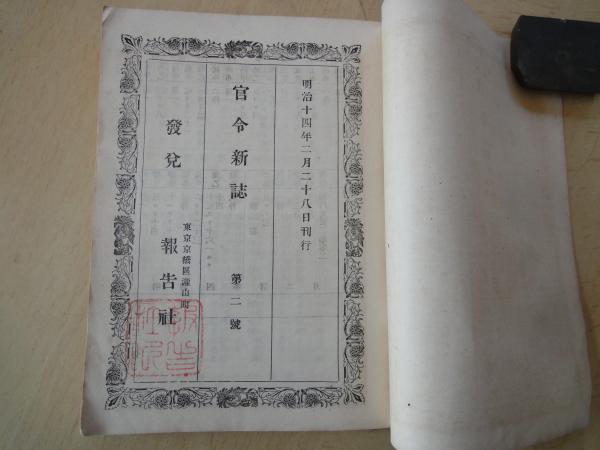 明治十四年二月二十八日刊行
官令新誌 第二號
東京京橋區鎗山町
發兌 報告社
報告社印